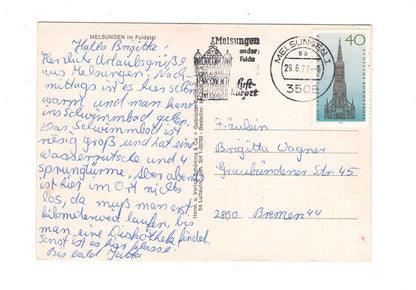 MELSUNGEN im Fuldatal
Hallo Brigitte!
Herzliche Urlaubsgrüße
aus Melsungen. Nach-
mittags ist es hier schön
warm und man kann
ins Schwimmbad gehen.
Das Schwimmbad ist
riesig groß und hat eine
Wasserrutsche und 4
Sprungtürme. Aber abends
ist hier im Ort nichts
los, da muß man erst
kilometerweit laufen, bis
man eine Diskothek findet.
Sonst ist es hier klasse!
Bis bald Jutta
Melsungen
an der
Fulda
Luft-
kurort
MELSUNGEN 1
sa
29.6.77
3508
40
DEUTSCHE BUNDESPOST
Fräulein
Brigitta Wagner
Graubündener Str. 45
2800 Bremen 44